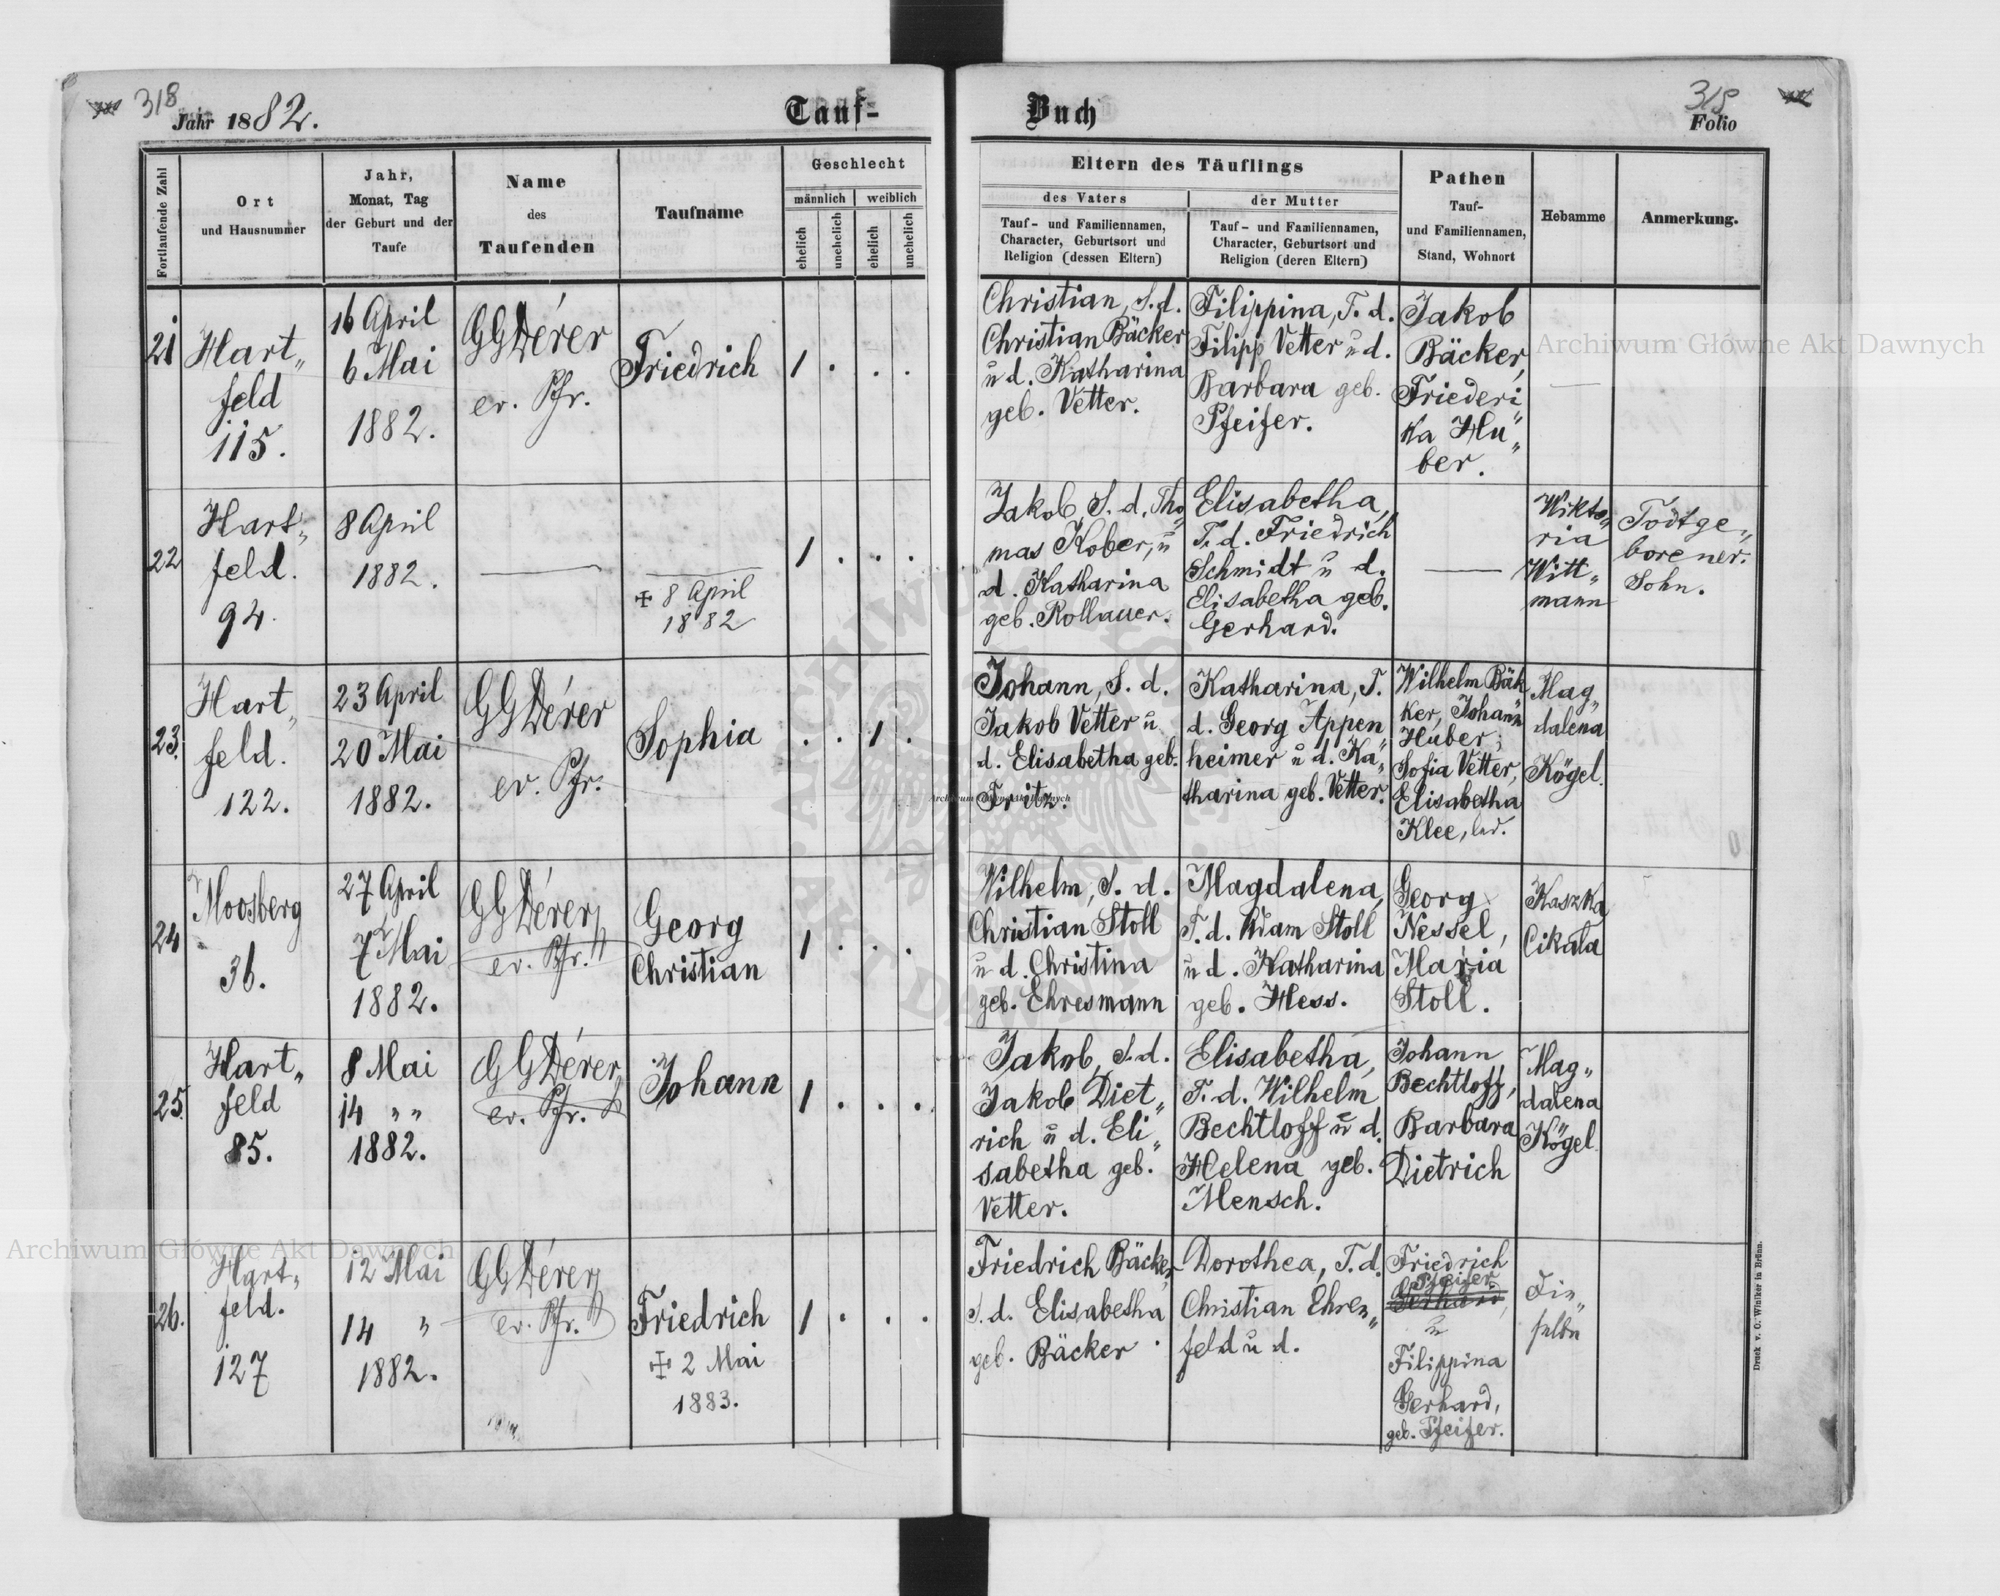 318
Jahr 1882.
Tauf-
Buch
318
Folio
Fortlaufende Zahl
Ort
und Hausnummer
Jahr,
Monat, Tag
der Geburt und der
Taufe
Name
des
Taufenden
Taufname
Geschlecht
männlich
weiblich
ehelich
unehelich
ehelich
unehelich
Eltern des Täuflings
des Vaters
der Mutter
Tauf- und Familiennamen,
Character, Geburtsort und
Religion (dessen Eltern)
Tauf- und Familiennamen,
Character, Geburtsort und
Religion (deren Eltern)
Pathen
Tauf-
und Familiennamen,
Stand, Wohnort
Hebamme
Anmerkung.
21
Hart„
feld
115.
16 April
6 Mai
1882.
GGDérer
ev. Pfr.
Friedrich
1 . . .
Christian, S. d.
Christian Bäcker
u d. Katharina
geb. Vetter.
Filippina, T. d.
Filipp Vetter u d.
Barbara geb.
Pfeifer.
Jakob
Bäcker,
Friederi„
ka Hu„
ber.
22
Hart„
feld.
94.
8 April
1882.
✠ 8 April
1882
1 . . .
Jakob, S. d. Tho„
mas Kober, u
d. Katharina
geb. Rollauer.
Elisabetha,
T. d. Friedrich
Schmidt u d.
Elisabetha geb.
Gerhard.
Wikto„
ria
Witt„
mann
Todtge„
borener
Sohn.
23.
Hart„
feld.
122.
23 April
20 Mai
1882.
GGDérer
ev. Pfr.
Sophia
. . 1 .
Johann, S. d.
Jakob Vetter u
d. Elisabetha geb.
Fritz.
Katharina, T.
d. Georg Appen„
heimer u d. Ka„
tharina geb. Vetter.
Wilhelm Bäk„
ker, Johann
Huber;
Sofia Vetter,
Elisabetha
Klee, led.
Mag„
dalena
Kögel.
24
Moosberg
36.
27 April
7 Mai
1882.
GGDérer
ev. Pfr.
Georg
Christian
1 . . .
Wilhelm, S. d.
Christian Stoll
u d. Christina
geb. Ehresmann
Magdalena,
T. d. Adam Stoll
u d. Katharina
geb. Hess.
Georg
Nessel,
Maria
Stoll.
Kaszka
Cikala
25.
Hart„
feld
85.
8 Mai
14 „ „
1882.
GGDérer
ev. Pfr.
Johann
1 . . .
Jakob, S. d.
Jakob Diet„
rich u d. Eli„
sabetha geb.
Vetter.
Elisabetha,
T. d. Wilhelm
Bechtloff u d.
Helena geb.
Mensch.
Johann
Bechtloff,
Barbara
Dietrich
Mag„
dalena
Kögel.
26.
Hart„
feld.
127
12 Mai
14 „
1882.
GGDérer
ev. Pfr.
Friedrich
✠ 2 Mai
1883.
1 . . .
Friedrich Bäcker,
S. d. Elisabetha
geb. Bäcker.
Dorothea, T. d.
Christian Ehren„
feld u d.
Friedrich
Pfeifer
Gerhard,
u
Filippina
Gerhard,
geb. Pfeifer.
Die„
selbe
Druck v. C. Winiker in Brünn.
Archiwum Główne Akt Dawnych
Archiwum Główne Akt Dawnych
Archiwum Główne Akt Dawnych